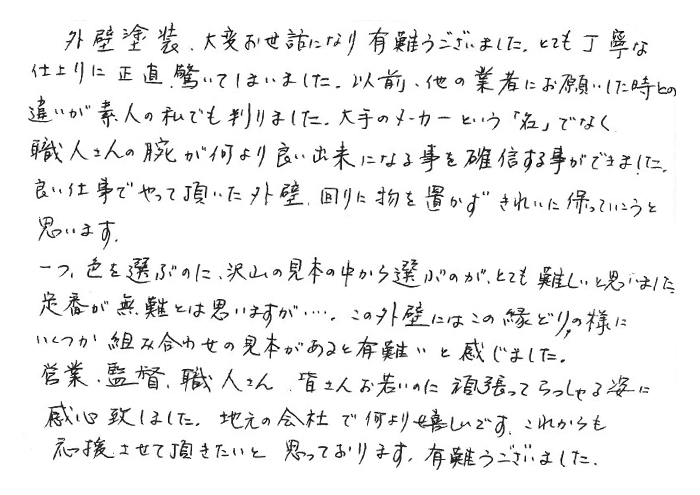 外壁塗装、大変お世話になり有難うございました。とても丁寧な
仕上りに正直、驚いてしまいました。以前、他の業者にお願いした時との
違いが素人の私でも判りました。大手のメーカーという「名」でなく
職人さんの腕が何より良い出来になる事を確信する事ができました。
良い仕事でやって頂いた外壁、回りに物を置かずきれいに保っていこうと
思います。
一つ、色を選ぶのに、沢山の見本の中から選ぶのが、とても難しいと思いました
定番が無難とは思いますが…。この外壁にはこの縁どりの様に
いくつか組み合わせの見本があると有難いと感じました。
営業、監督、職人さん、皆さんお若いのに頑張ってらっしゃる姿に
感心致しました。地元の会社で何より嬉しいです。これからも
応援させて頂きたいと思っております。有難うございました。